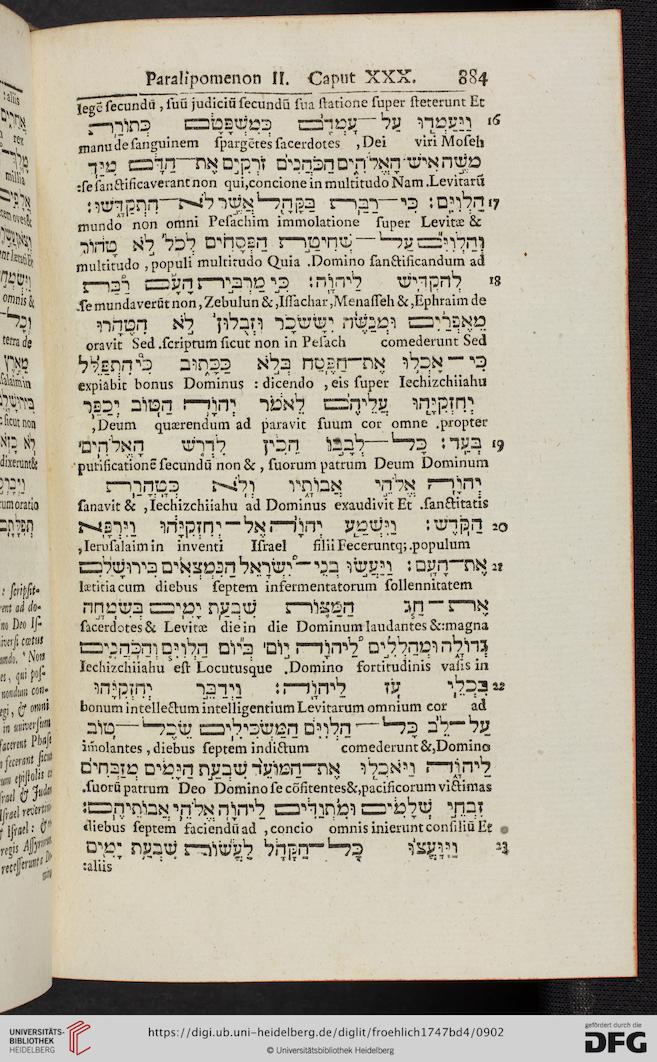 Paralipomenon II. Caput XXX. 884
legē secundū, suū judiciū secundū sua statione super steterunt Et
16 וַיַּעַמְדוּ עַל־עָמְדָם כְּמִשְׁפָּטָם כְּתוֹרַת
manu de sanguinem spargētes sacerdotes, Dei viri Moseh
מֹשֶׁה אִישׁ־הָאֱלֹהִים הַכֹּהֲנִים זֹרְקִים אֶת־הַדָּם מִיַּד
:se sanctificaverant non qui, concione in multitudo Nam .Levitarū
17 הַלְוִיִּם׃ כִּי־רַבַּת בַּקָּהָל אֲשֶׁר לֹא־הִתְקַדָּשׁוּ
mundo non omni Pesachim immolatione super Levitæ &
וְהַלְוִיִּם עַל־שְׁחִיטַת הַפְּסָחִים לְכֹל לֹא טָהוֹר
multitudo, populi multitudo Quia .Domino sanctificandum ad
18 לְהַקְדִּישׁ לַיהוָה׃ כִּי מַרְבִּית הָעָם רַבַּת
.se mundaverūt non, Zebulun &, Issachar, Menasseh &, Ephraim de
מֵאֶפְרַיִם וּמְנַשֶּׁה יִשָּׂשכָר וּזְבֻלוּן לֹא הִטֶּהָרוּ
oravit Sed .scriptum sicut non in Pesach comederunt Sed
כִּי־אָכְלוּ אֶת־הַפֶּסַח בְּלֹא כַכָּתוּב כִּי הִתְפַּלֵּל
expiabit bonus Dominus : dicendo, eis super Iechizchiiahu
יְחִזְקִיָּהוּ עֲלֵיהֶם לֵאמֹר יְהוָה הַטּוֹב יְכַפֵּר
,Deum quærendum ad paravit suum cor omne .propter
19 בְּעַד׃ כָּל־לְבָבוֹ הֵכִין לִדְרֹשׁ הָאֱלֹהִים
purificationē secundū non &, suorum patrum Deum Dominum
יְהוָה אֱלֹהֵי אֲבוֹתָיו וְלֹא כְּטָהֳרַת
sanavit &, Iechizchiiahu ad Dominus exaudivit Et .sanctitatis
20 הַקֹּדֶשׁ׃ וַיִּשְׁמַע יְהוָה אֶל־יְחִזְקִיָּהוּ וַיִּרְפָּא
,Ierusalaim in inventi Israel filii Feceruntq; .populum
21 אֶת־הָעָם׃ וַיַּעֲשׂוּ בְנֵי־יִשְׂרָאֵל הַנִּמְצְאִים בִּירוּשָׁלִַם
lætitia cum diebus septem infermentatorum sollennitatem
אֶת־חַג הַמַּצּוֹת שִׁבְעַת יָמִים בְּשִׂמְחָה
sacerdotes & Levitæ die in die Dominum laudantes &:magna
גְדוֹלָה וּמְהַלְלִים לַיהוָה יוֹם בְּיוֹם הַלְוִיִּם וְהַכֹּהֲנִים
Iechizchiiahu est Locutusque .Domino fortitudinis vasis in
22 בִּכְלֵי עֹז לַיהוָה׃ וַיְדַבֵּר יְחִזְקִיָּהוּ
bonum intellectum intelligentium Levitarum omnium cor ad
עַל־לֵב כָּל־הַלְוִיִּם הַמַּשְׂכִּילִים שֵׂכֶל־טוֹב
imolantes, diebus septem indictum comederunt &, Domino
לַיהוָה וַיֹּאכְלוּ אֶת־הַמּוֹעֵד שִׁבְעַת הַיָּמִים מְזַבְּחִים
.suorū patrum Deo Domino se cōfitentes &, pacificorum victimas
זִבְחֵי שְׁלָמִים וּמִתְוַדִּים לַיהוָה אֱלֹהֵי אֲבוֹתֵיהֶם׃
diebus septem faciendū ad, concio omnis inierunt consiliū Et
23 וַיִּוָּעֲצוּ כָּל־הַקָּהָל לַעֲשׂוֹת שִׁבְעַת יָמִים
:aliis
UNIVERSITÄTS-BIBLIOTHEK HEIDELBERG
https://digi.ub.uni-heidelberg.de/diglit/froehlich1747bd4/0902
© Universitätsbibliothek Heidelberg
gefördert durch die
DFG